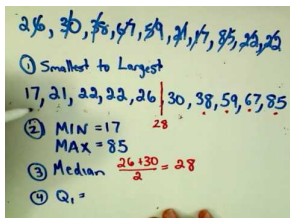 26, 30, 38, 67, 59, 21, 17, 85, 22, 22
① Smallest to Largest
17, 21, 22, 22, 26 | 30, 38, 59, 67, 85
28
② MIN = 17
MAX = 85
③ Median 26+30 / 2 = 28
④ Q₁ =